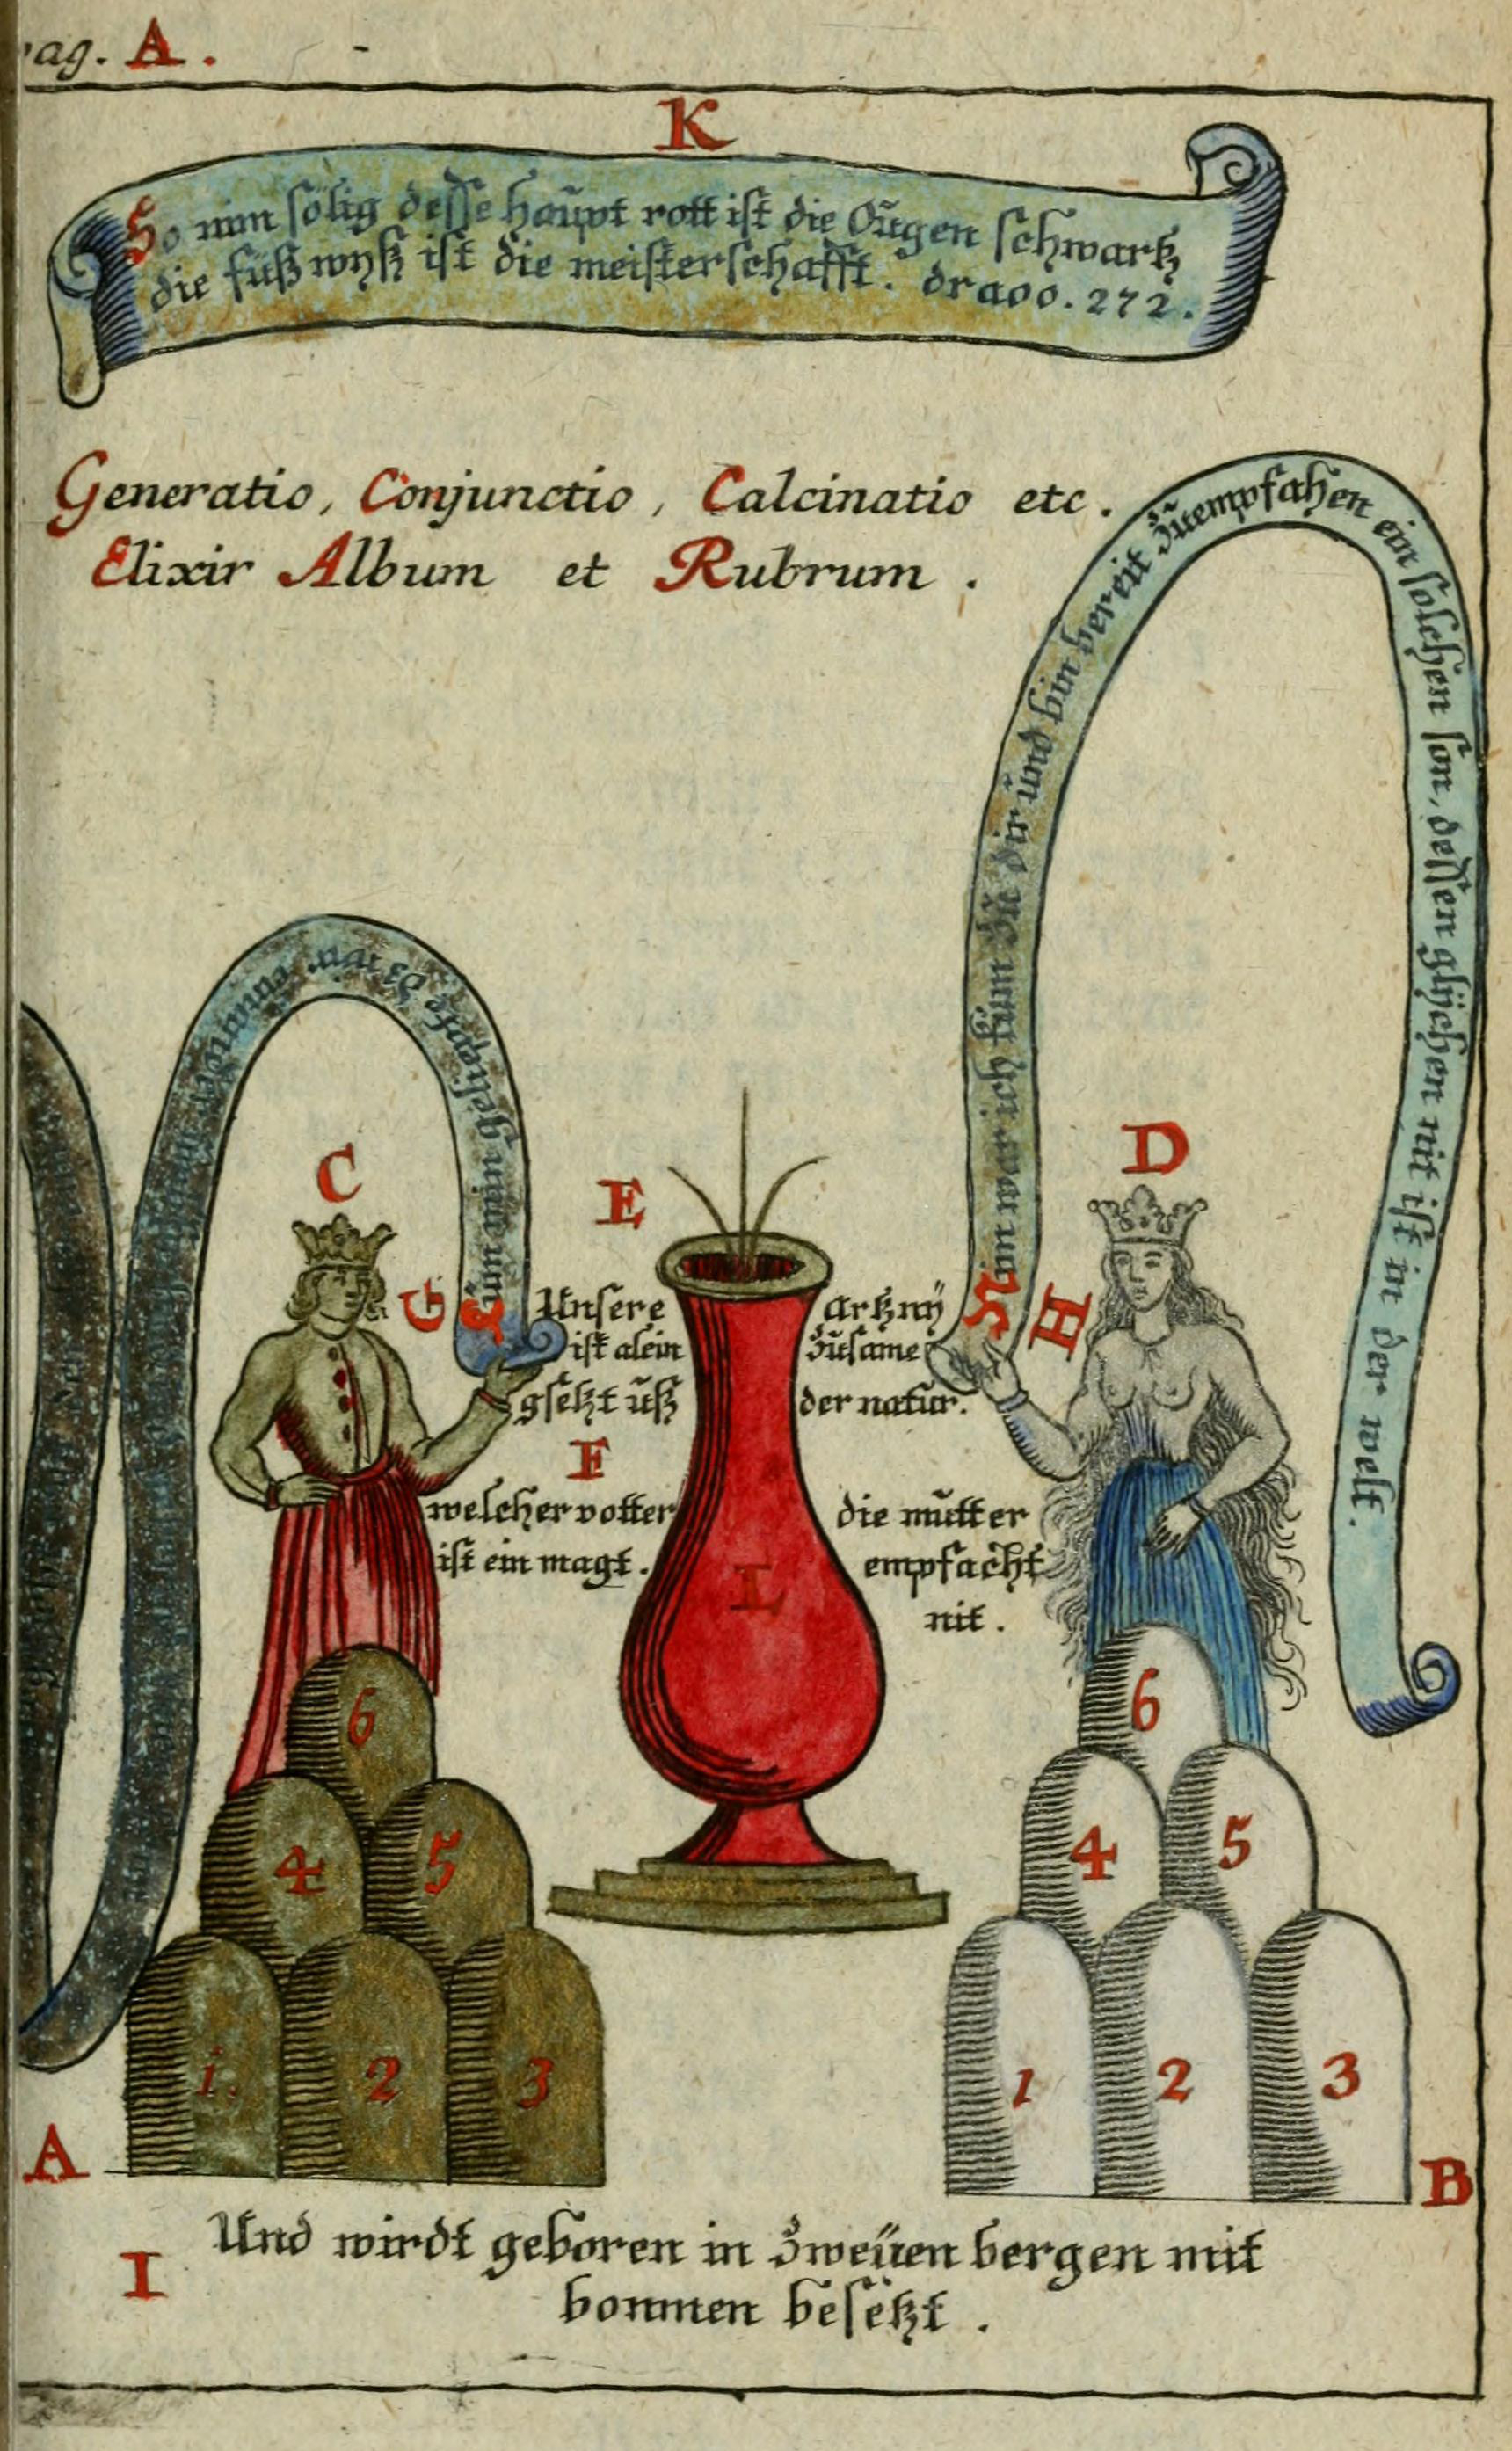 ag. A.
K
So nim sölig desse haupt rott ist die Ougen schwartz
die füß wyß ist die meisterschafft. draco. 272.
Generatio, Conjunctio, Calcinatio etc.
Elixir Album et Rubrum.
C
G
Kum min geliepte
E
Unsere artzny
ist alein zusame
gsetzt uß der natur.
F
welcher votter die mutter
ist ein magt. empfacht
nit.
L
D
H
Nun war ich kum zu dir und bin bereit zu empfahen ein solchen son, dessen glychen nit ist in der welt.
6
4 5
1. 2 3
A
6
4 5
1 2 3
B
I
Und wirdt geboren in zweuen bergen mit
bommen besetzt.